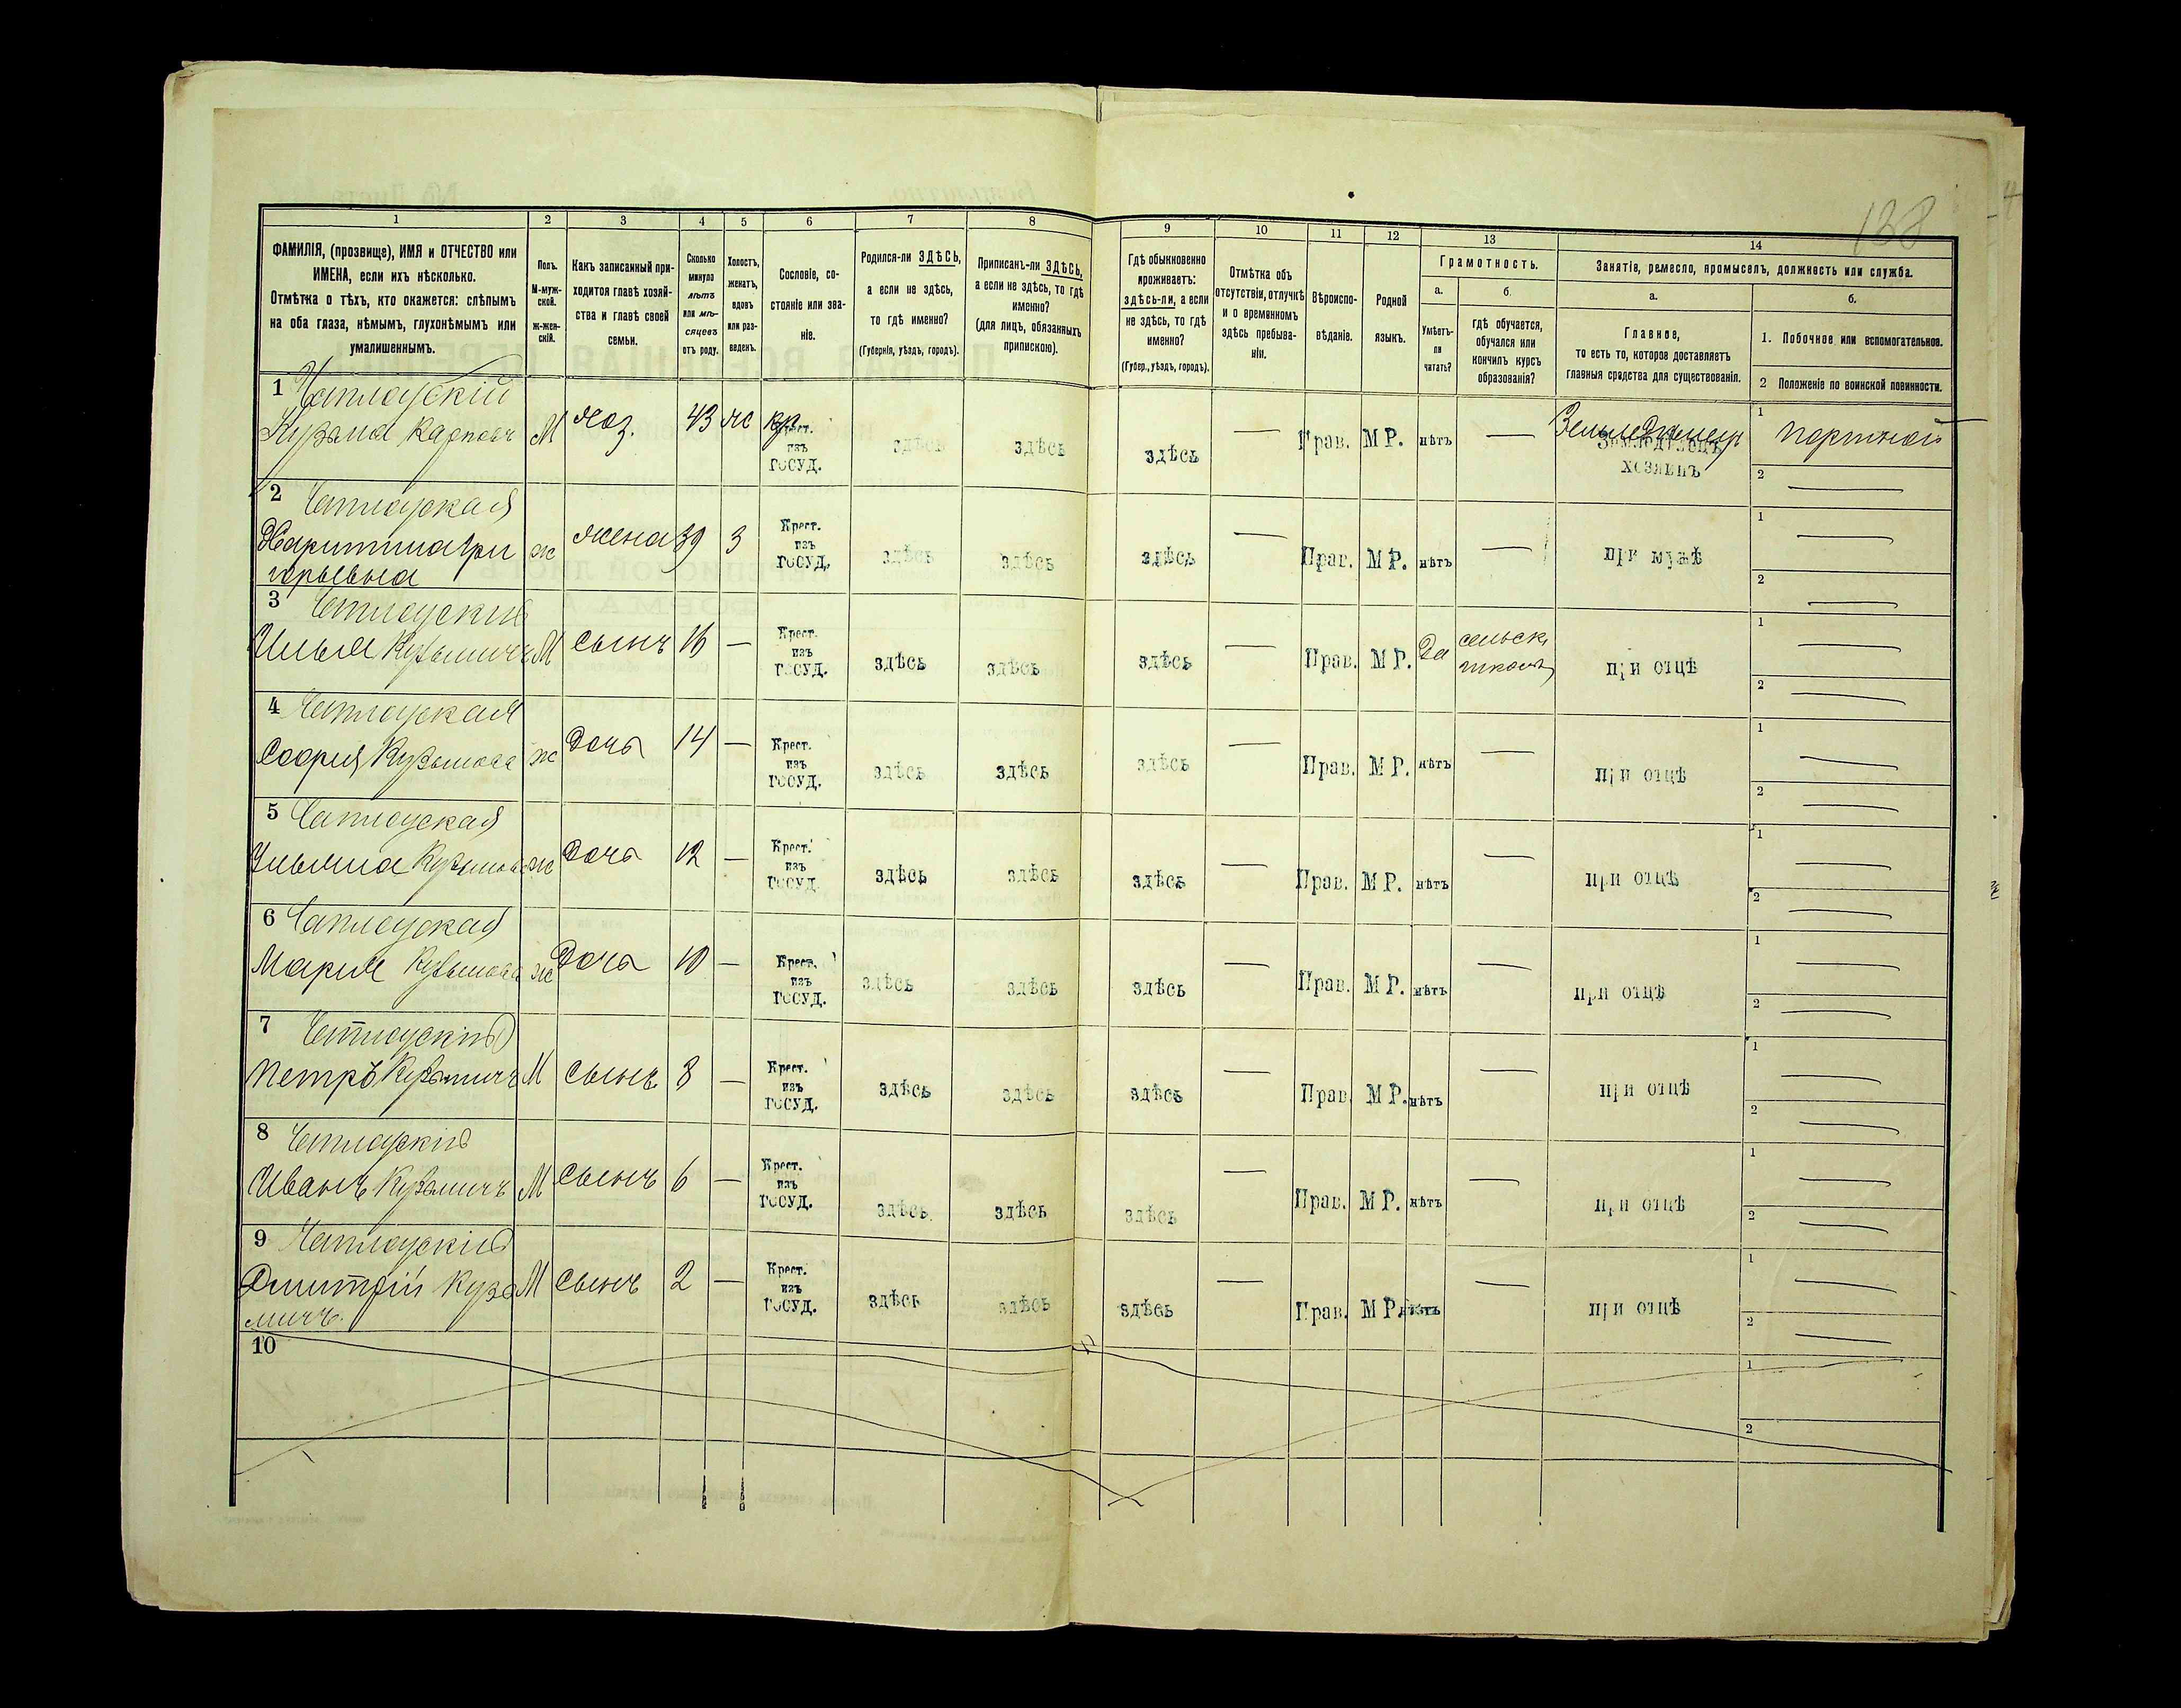 138
1 2 3 4 5 6 7 8 9 10 11 12 13 14
ФАМИЛІЯ, (прозвище), ИМЯ и ОТЧЕСТВО или
ИМЕНА, если ихъ нѣсколько.
Отмѣтка о тѣхъ, кто окажется: слѣпымъ
на оба глаза, нѣмымъ, глухонѣмымъ или
умалишеннымъ.
Полъ.
М-муж-
ской.
ж-жен-
скій.
Какъ записанный при-
ходится главѣ хозяй-
ства и главѣ своей
семьи.
Сколько
минуло
лѣтъ
или мѣ-
сяцевъ
отъ роду.
Холостъ,
женатъ,
вдовъ
или раз-
веденъ.
Сословіе, со-
стояніе или зва-
ніе.
Родился-ли ЗДѢСЬ,
а если не здѣсь,
то гдѣ именно?
(Губернія, уѣздъ, городъ).
Приписанъ-ли ЗДѢСЬ,
а если не здѣсь, то гдѣ
именно?
(для лицъ, обязанныхъ
припискою).
Гдѣ обыкновенно
проживаетъ:
здѣсь-ли, а если
не здѣсь, то гдѣ
именно?
(Губер., уѣздъ, городъ).
Отмѣтка объ
отсутствіи, отлучкѣ
и о временномъ
здѣсь пребыва-
ніи.
Вѣроиспо-
вѣданіе.
Родной
языкъ.
Грамотность.
а.
Умѣетъ-
ли
читать?
б.
гдѣ обучается,
обучался или
кончилъ курсъ
образованія?
Занятіе, ремесло, промыселъ, должность или служба.
а.
Главное,
то есть то, которое доставляетъ
главныя средства для существованія.
б.
1. Побочное или вспомогательное.
2 Положеніе по воинской повинности.
1
Кузьма Карповъ М хоз. 43 ж кр. Крест. изъ ГОСУД. здѣсь здѣсь здѣсь — Прав. М Р. нѣтъ — Земледѣлецъ хозяинъ 1 портной
2 —
2
Харитина Гри
горьевна ж жена 39 З Крест. изъ ГОСУД. здѣсь здѣсь здѣсь — Прав. М Р. нѣтъ — при мужѣ 1 —
2 —
3
Илья Кузьмичъ М сынъ 16 — Крест. изъ ГОСУД. здѣсь здѣсь здѣсь — Прав. М Р. Да сельск. при отцѣ 1 —
2 —
4
София Кузьмова ж Дочь 14 — Крест. изъ ГОСУД. здѣсь здѣсь здѣсь — Прав. М Р. нѣтъ — при отцѣ 1 —
2 —
5
ж Дочь 12 — Крест. изъ ГОСУД. здѣсь здѣсь здѣсь — Прав. М Р. нѣтъ — при отцѣ 1 —
2 —
6
Мария Кузьмова ж Дочь 10 — Крест. изъ ГОСУД. здѣсь здѣсь здѣсь — Прав. М Р. нѣтъ — при отцѣ 1 —
2 —
7
Петръ Кузьмичъ М Сынъ 8 — Крест. изъ ГОСУД. здѣсь здѣсь здѣсь — Прав. М Р. нѣтъ — при отцѣ 1 —
2 —
8
Иванъ Кузьмичъ М Сынъ 6 — Крест. изъ ГОСУД. здѣсь здѣсь здѣсь — Прав. М Р. нѣтъ — при отцѣ 1 —
2 —
9
Дмитрій Кузь
мичъ. М Сынъ 2 — Крест. изъ ГОСУД. здѣсь здѣсь здѣсь — Прав. М Р. нѣтъ — при отцѣ 1 —
2 —
10 1
2